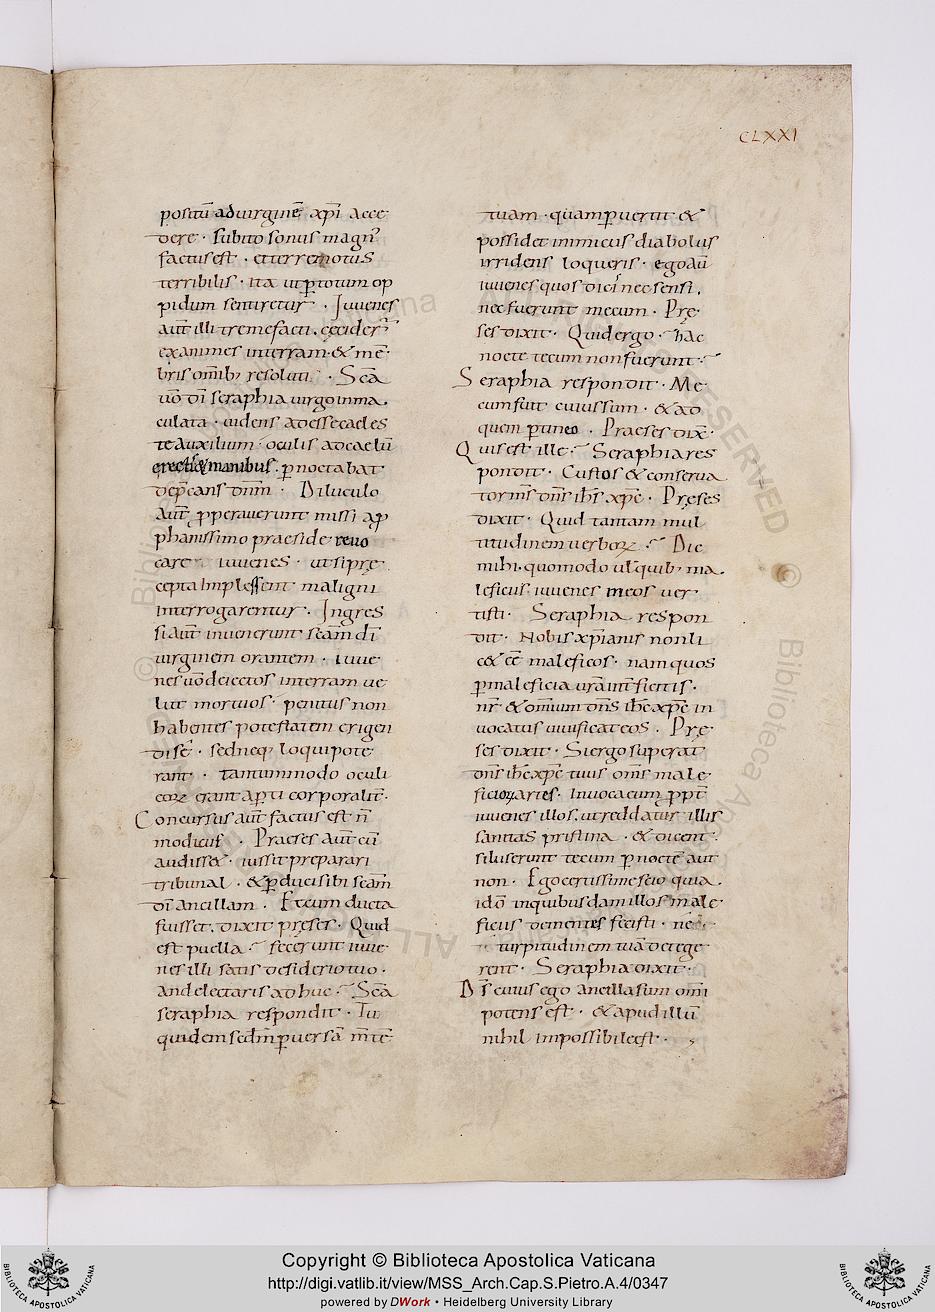 CLXXI
positū ad uirginē xp̄i acce
dere · Subito sonus magn᾿
factus est · et terremotus
terribilis · ita ut ꝑ totum op
pidum sentiretur · Iuuenes
aūt illi tremefacti · cęcider̄
exanimes in terram · & mē
bris om̄ib; resoluti · Sc̄a
uō dī seraphia uirgo inma
culata · uidens adesse caeles
te auxilium · oculis ad caelū
erectis & manibus · pernoctabat
dep̄cans dn̄m · Diluculo
aūt ꝓperauerunt missi a ꝓ
phanissimo praeside reuo
care iuuenes · ut si prę
cepta implessent maligni
interrogarentur · Ingres
si aūt inuenerunt sc̄am dī
uirginem orantem · iuue
nes uō deiectos in terram ue
lut mortuos · penitus non
habentes potestatem erigen
di sē · sed neq; loqui pote
rant · tantummodo oculi
eoꝝ erant aꝑti corporalit̄ ·
Concursus aūt factus est n̄
modicus · Praeses aūt cū
audisset · iussit preparari
tribunal · & ꝑduci sibi sc̄am
dī ancillam · Et cum ducta
fuisset · dixit pręses · Quid
est puella · fecerunt iuue
nes illi satis desiderio tuo ·
an delectaris adhuc · Sc̄a
seraphia respondit · Tu
quidem secdm̄ ꝑuersā mn̄tē
tuam · quam ꝑuertit &
possidet inimicus diabolus
irridens loqueris · ego aū
iuuenes quos dicis nec sensi ·
nec fuerunt mecum · Prę
ses dixit · Quid ergo · hac
nocte tecum non fuerunt ·
Seraphia respondit · Me
cum fuit cuius sum · & ad
quem ꝑtineo · Praeses dix̄ ·
Quis est ille · Seraphia res
pondit · Custos & conserua
tor m̄s dn̄s ih̄s xp̄c · Pręses
dixit · Quid tantam mul
titudinem uerboꝝ · Dic
mihi · quomodo ul̄ quib; ma
leficiis iuuenes meos uer
tisti · Seraphia respon
dit · Nobis xp̄ianis non li
cet eē maleficos · nam quos
ꝑ maleficia ur̄a int̄ficitis ·
nr̄ & omnium dn̄s ih̄c xp̄c in
uocatus uiuificat eos · Prę
ses dixit · Si ergo superat
dn̄s ih̄c xp̄c tuus om̄s male
ficioꝝ artes · Inuoca eum ꝓpt̄
iuuenes illos · ut reddatur illis
sanitas pristina · & dicent
si luserunt tecum ꝑ noctē aut
non · Ego certissime scio quia
ideo in quibusdam illos male
ficiis dementes fecisti · nē
turpitudinem tuā detege
rent · Seraphia dixit ·
Ds̄ cuius ego ancilla sum omni
potens est · & apud illū
nihil impossibile est ·
© Biblioteca Apostolica Vaticana ALL RIGHTS RESERVED
Copyright © Biblioteca Apostolica Vaticana
http://digi.vatlib.it/view/MSS_Arch.Cap.S.Pietro.A.4/0347
powered by DWork • Heidelberg University Library
BIBLIOTECA APOSTOLICA VATICANA
BIBLIOTECA APOSTOLICA VATICANA